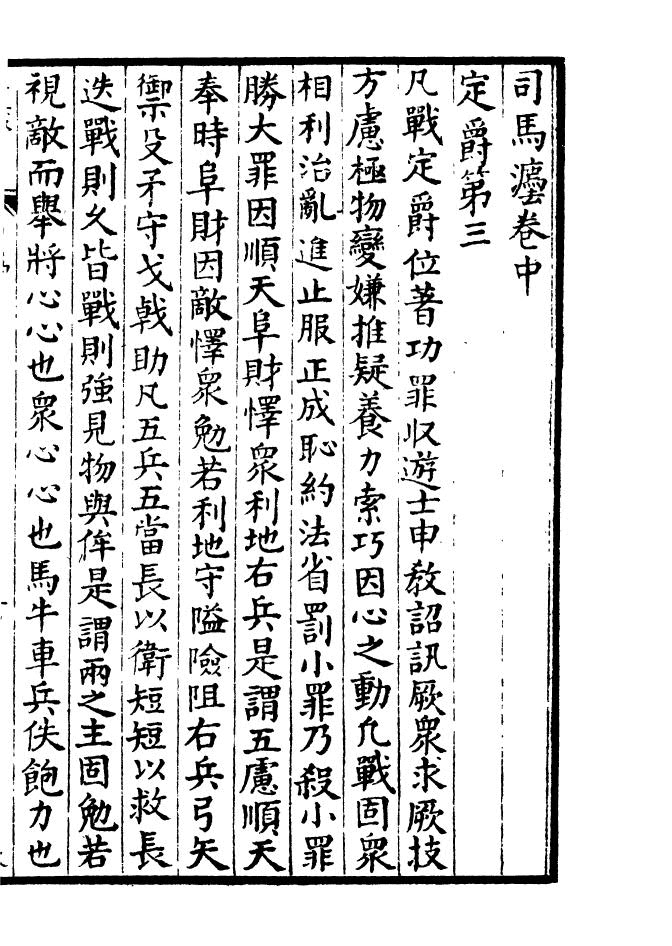 司馬灋卷中
定爵第三
凡戰定爵位著功罪収遊士申教詔訊厥衆求厥技
方慮極物變嫌推疑養力索巧因心之動凡戰固衆
相利治亂進止服正成恥約法省罰小罪乃殺小罪
勝大罪因順天阜財懌衆利地右兵是謂五慮順天
奉時阜財因敵懌衆勉若利地守隘險阻右兵弓矢
禦殳矛守戈戟助凡五兵五當長以衛短短以救長
迭戰則久皆戰則強見物與侔是謂兩之主固勉若
視敵而舉將心心也衆心心也馬牛車兵佚飽力也